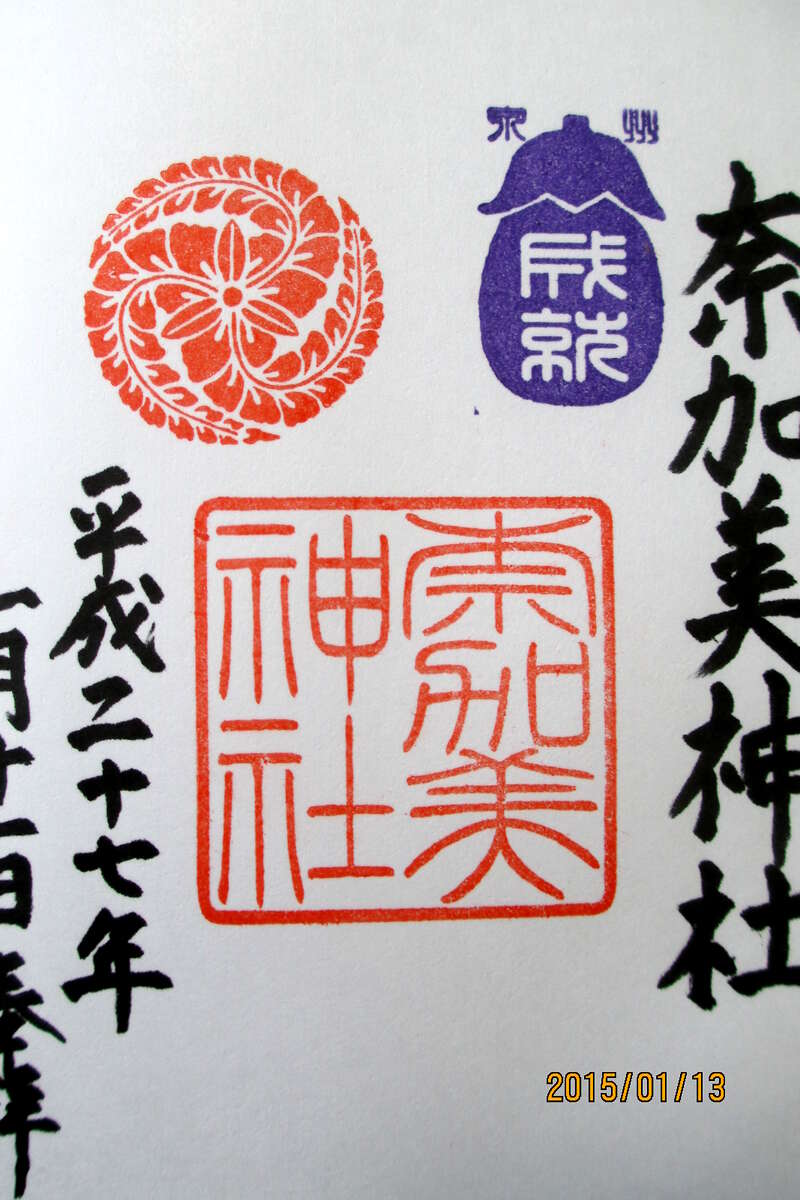 奈加美神社
泉州
成就
奈加美
神社
平成二十七年
一月十一日奉拝
2015/01/13